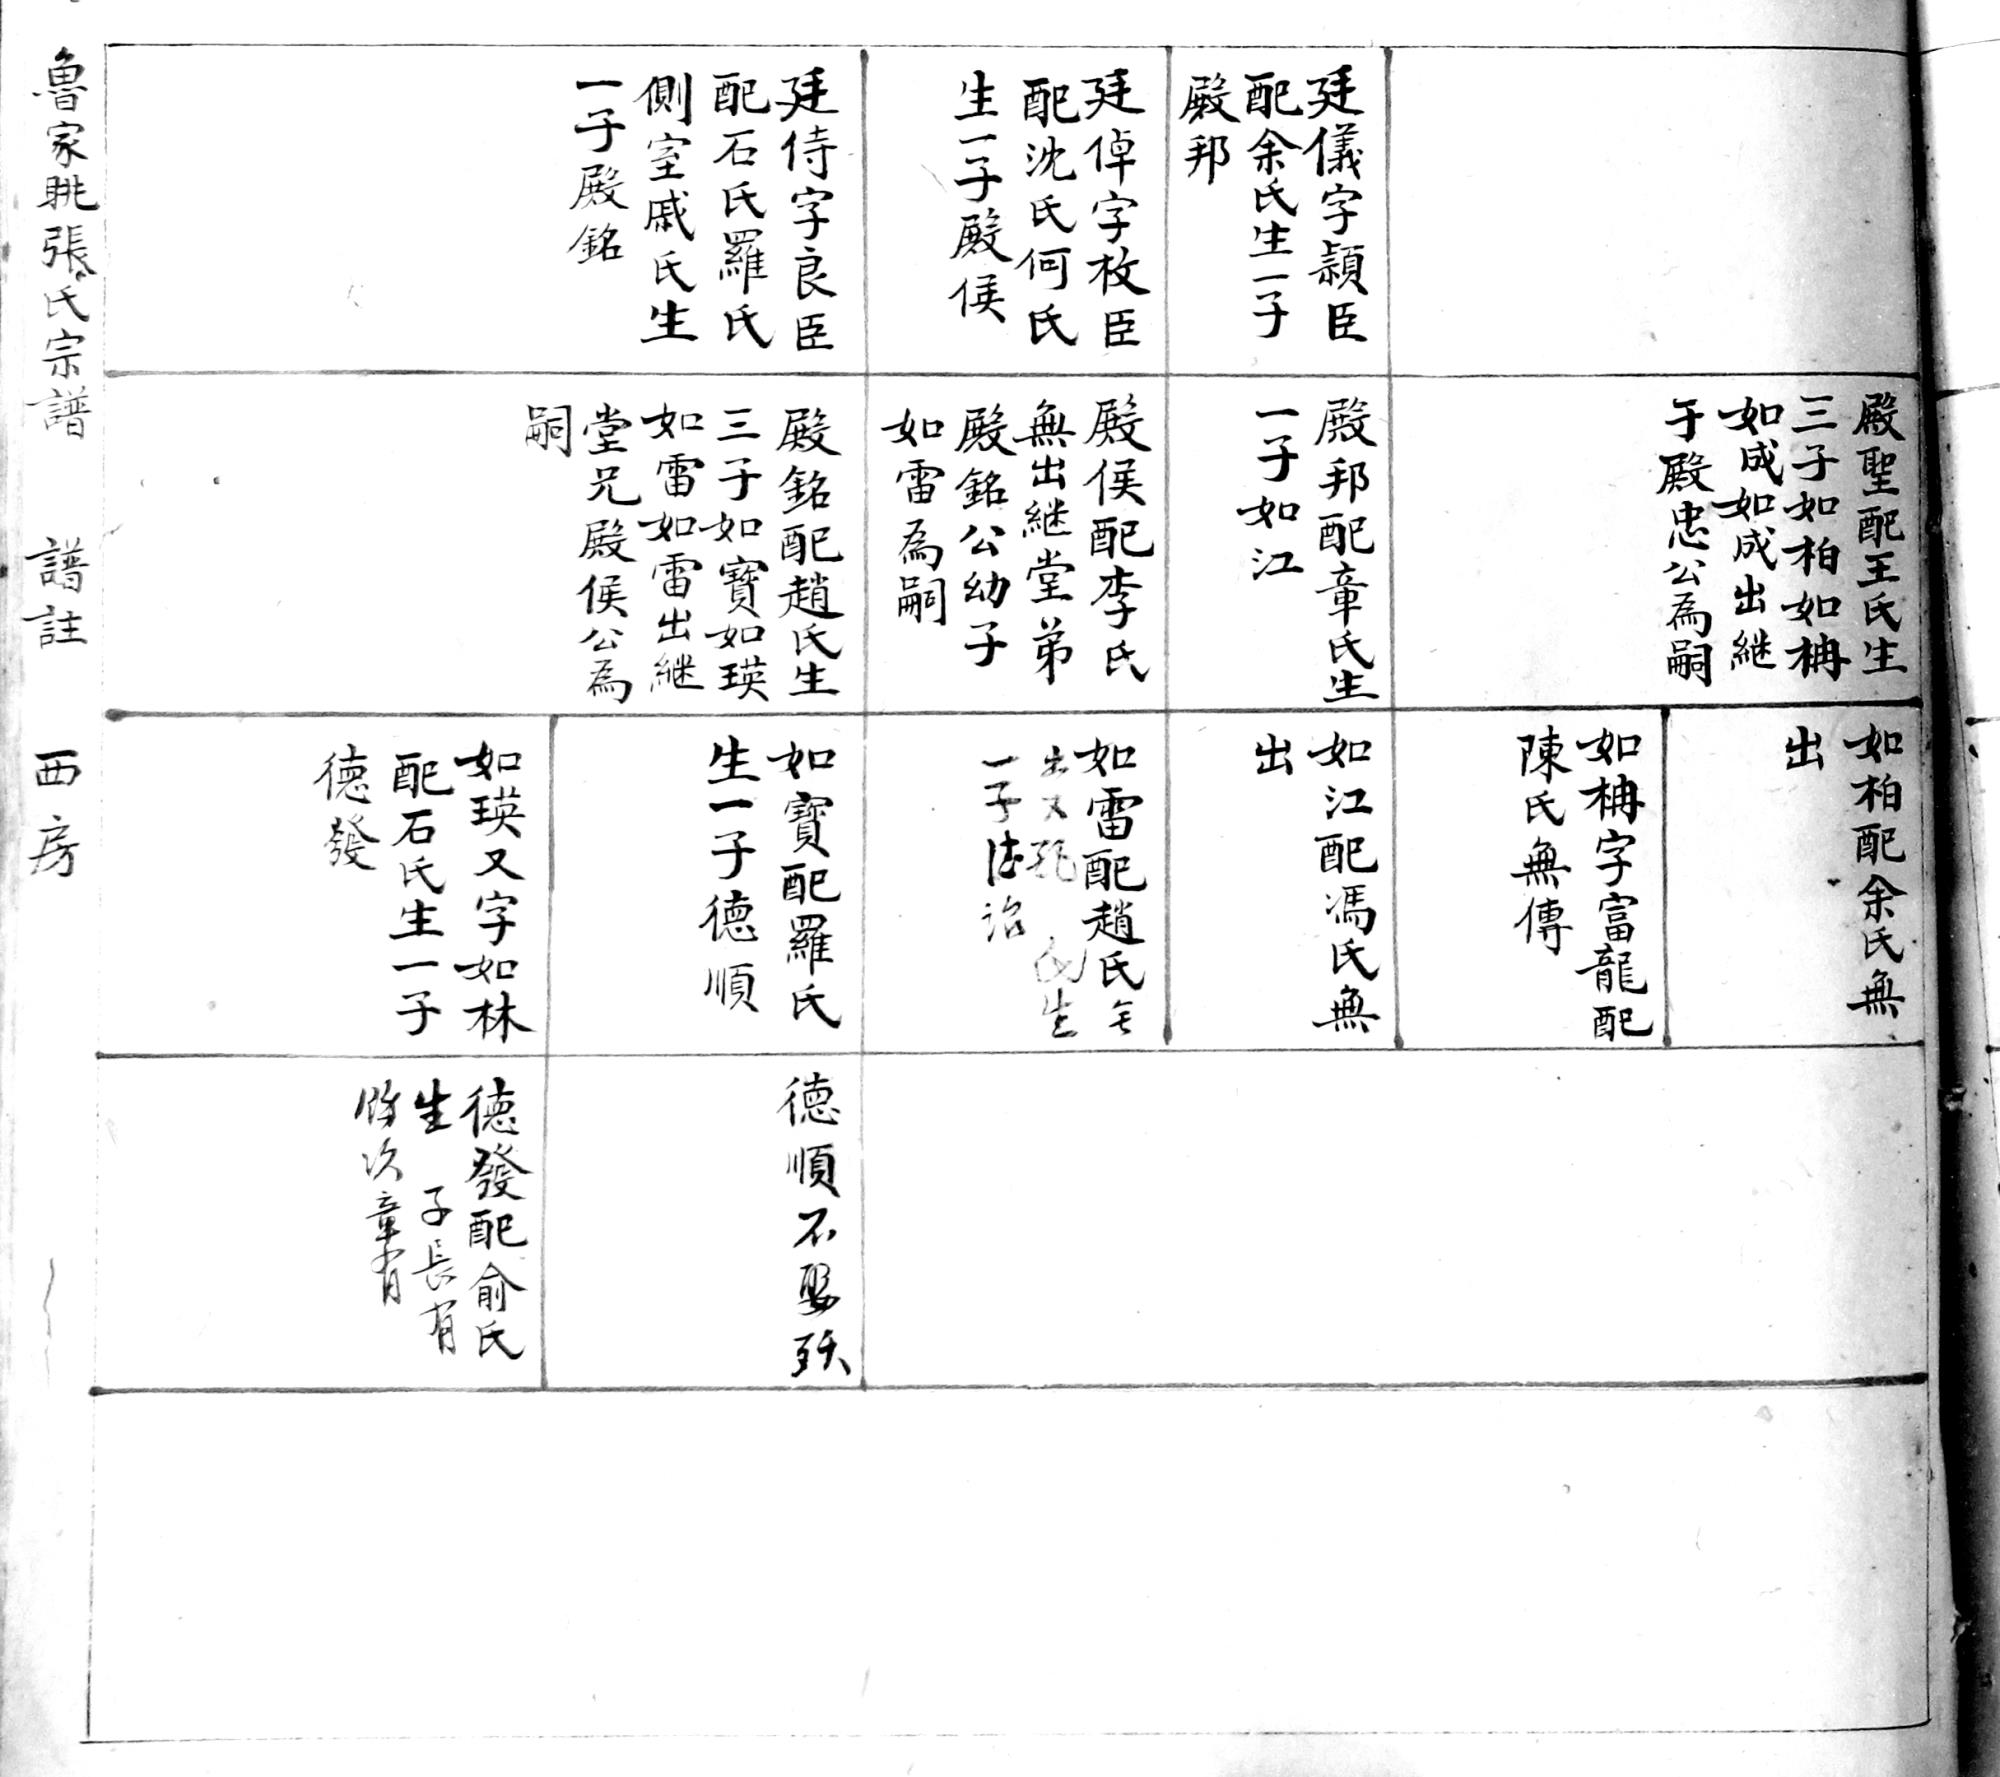 廷儀字穎臣
配余氏生一子
殿邦
廷倬字枚臣
配沈氏何氏
生一子殿侯
廷侍字良臣
配石氏羅氏
側室戚氏生
一子殿銘
殿聖配王氏生
三子如柏如柟
如成如成出継
于殿忠公為嗣
殿邦配章氏生
一子如江
殿侯配李氏
無出継堂弟
殿銘公幼子
如雷為嗣
殿銘配趙氏生
三子如寶如瑛
如雷如雷出継
堂兄殿侯公為
嗣
如柏配余氏無
出
如柟字富龍配
陳氏無傳
如江配馮氏無
出
如雷配趙氏无
出又配氏生
一子德治
如寶配羅氏
生一子德順
如瑛又字如林
配石氏生一子
德發
德順不娶殀
德發配俞氏
生子長有
次章有
魯家眺張氏宗譜
譜註
西房